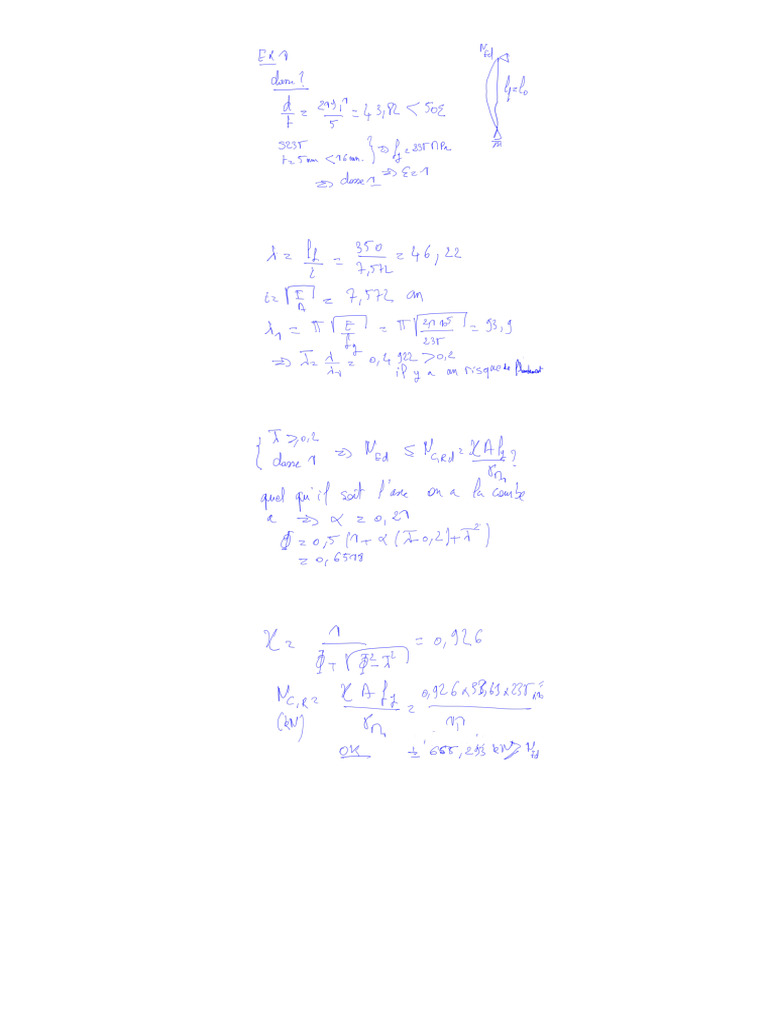 EX 1
N_Ed
classe ?
l_f = l_0
d/t = 219,1/5 = 43,82 < 50ε
S235
t = 5 mm < 16 mm. } ⇒ f_y = 235 MPa
⇒ classe 1 ⇒ ε = 1
λ = l_f/i = 350/7,572 = 46,22
i = √(I/A) = 7,572 cm
λ_1 = π √(E/f_y) = π √(2,1 10^5/235) = 93,9
⇒ λ̄ = λ/λ_1 = 0,4922 > 0,2
il y a un risque de flambement
{ λ̄ ≥ 0,2
classe 1 ⇒ N_Ed ≤ N_c,Rd = χ A f_y/γ_M1 ?
quel qu'il soit l'axe on a la courbe
a ⇒ α = 0,21
Φ = 0,5 (1 + α (λ̄ - 0,2) + λ̄²)
= 0,6518
χ = 1/(Φ + √(Φ² - λ̄²)) = 0,926
N_c,R = χ A f_y/γ_M1 = 0,926 × 33,63 × 235
(kN)
OK
kN > N_Ed